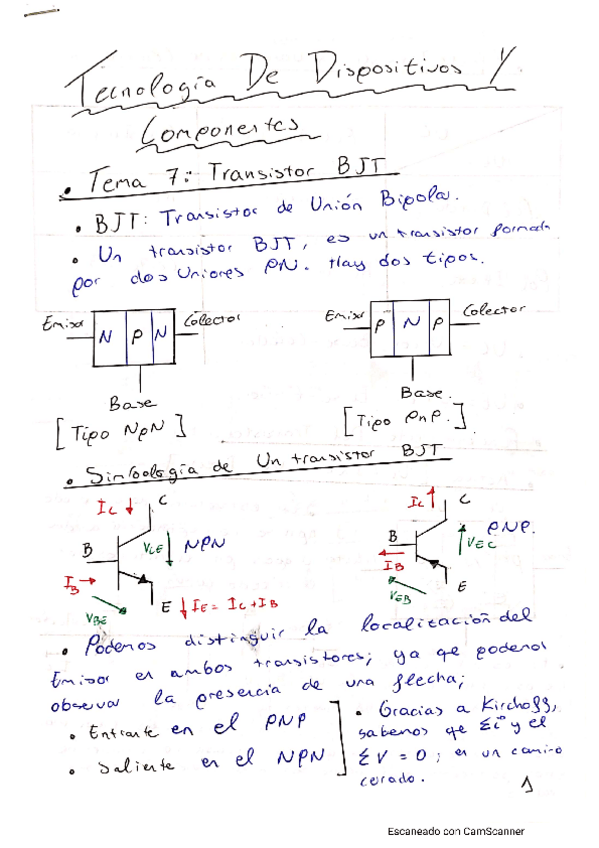 Tecnología De Dispositivos Y
Componentes
• Tema 7: Transistor BJT
• BJT: Transistor de Unión Bipolar.
• Un transistor BJT, es un transistor formado
por dos Uniones PN. Hay dos tipos.
Emisor N P N Colector
Base
[Tipo NPN]
Emisor P N P Colector
Base.
[Tipo PnP.]
• Simbología de Un transistor BJT
IC C
B VCE NPN
IB
VBE
E IE = IC + IB
IC C
B VEC PNP.
IB
VEB E
• Podemos distinguir la localización del
Emisor en ambos transistores; ya qe podemos
observar la presencia de una flecha;
• Entrante en el PNP
• Saliente en el NPN
• Gracias a Kirchoff,
sabemos qe Σi y el
ΣV = 0; en un camino
cerado.
1
Escaneado con CamScanner